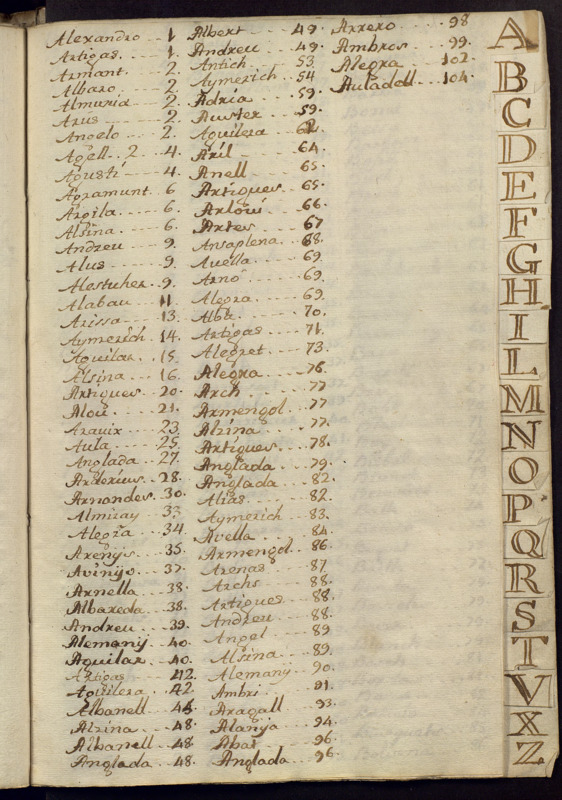 Alexandro 1
Artigas 1.
Armant 2.
Albaro 2.
Almuria 2.
Arús 2.
Angelo 2.
Agell 2 4.
Agustí 4.
Agramunt 6
Argila 6.
Alsina 6.
Andreu 9.
Alus 9.
Alestuher 9.
Alabau 11
Arissa 13.
Aymerich 14.
Aguilar 15.
Alsina 16.
Artigues 20.
Aloú 21.
Arauix 23.
Aula 25.
Anglada 27.
28.
Arnandes 30.
Almiray 33
Alegria 34.
Arenys 35.
Avinyo 37.
Arnella 38.
Albareda 38.
Andreu 39.
Alemany 40.
Aguilar 40.
Artigas 42.
Aguilera 42.
Albanell 44.
Alzina 48.
Albanell 48.
Anglada 48.
Albert 49.
Andreu 49.
Antich 53
Aymerich 54
Adria 59.
Auster 59.
Aguilera
Aril 64.
Anell 65.
Artigues 65.
Arlouí 66.
Artes 67
Ansaplena 68.
Avella 69.
Arnó 69.
Alegra 69.
Albir 70.
Artigas 71.
Alegret 73.
Alegra 76.
Arch 77
Armengol 77.
Alzina 77.
Artigues 78.
Anglada 79.
Anglada 82.
Alias 82.
Aymerich 83.
Avella 84.
Armengol 86.
Arenas 87
Archs 88.
Artigues 88.
Andreu 88.
Angel 89
Alsina 89.
Alemany 90.
Ambri 91.
Aragall 93.
Alanya 94.
Abat 96.
Anglada 96.
Arrero 98
Ambros 99.
Alegra 102.
Auladell 104.
A
B
C
D
E
F
G
H
I
L
M
N
O
P
Q
R
S
T
V
X
Z